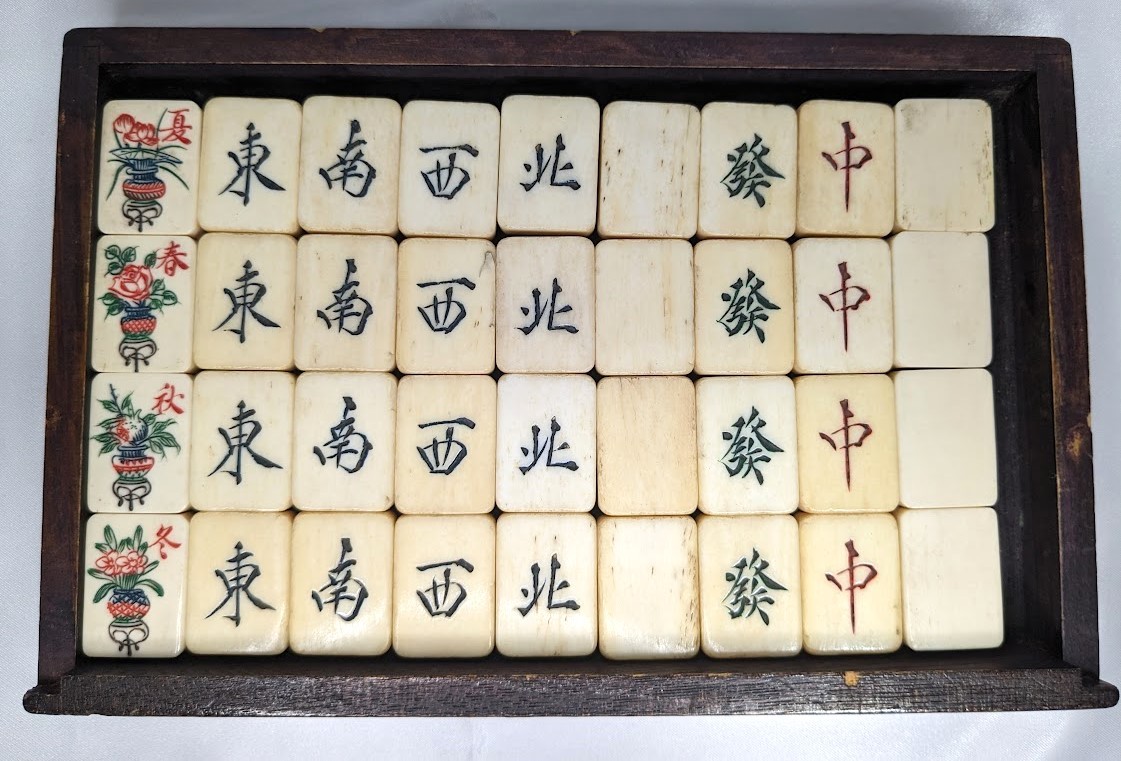 夏 東 南 西 北 發 中
春 東 南 西 北 發 中
秋 東 南 西 北 發 中
冬 東 南 西 北 發 中